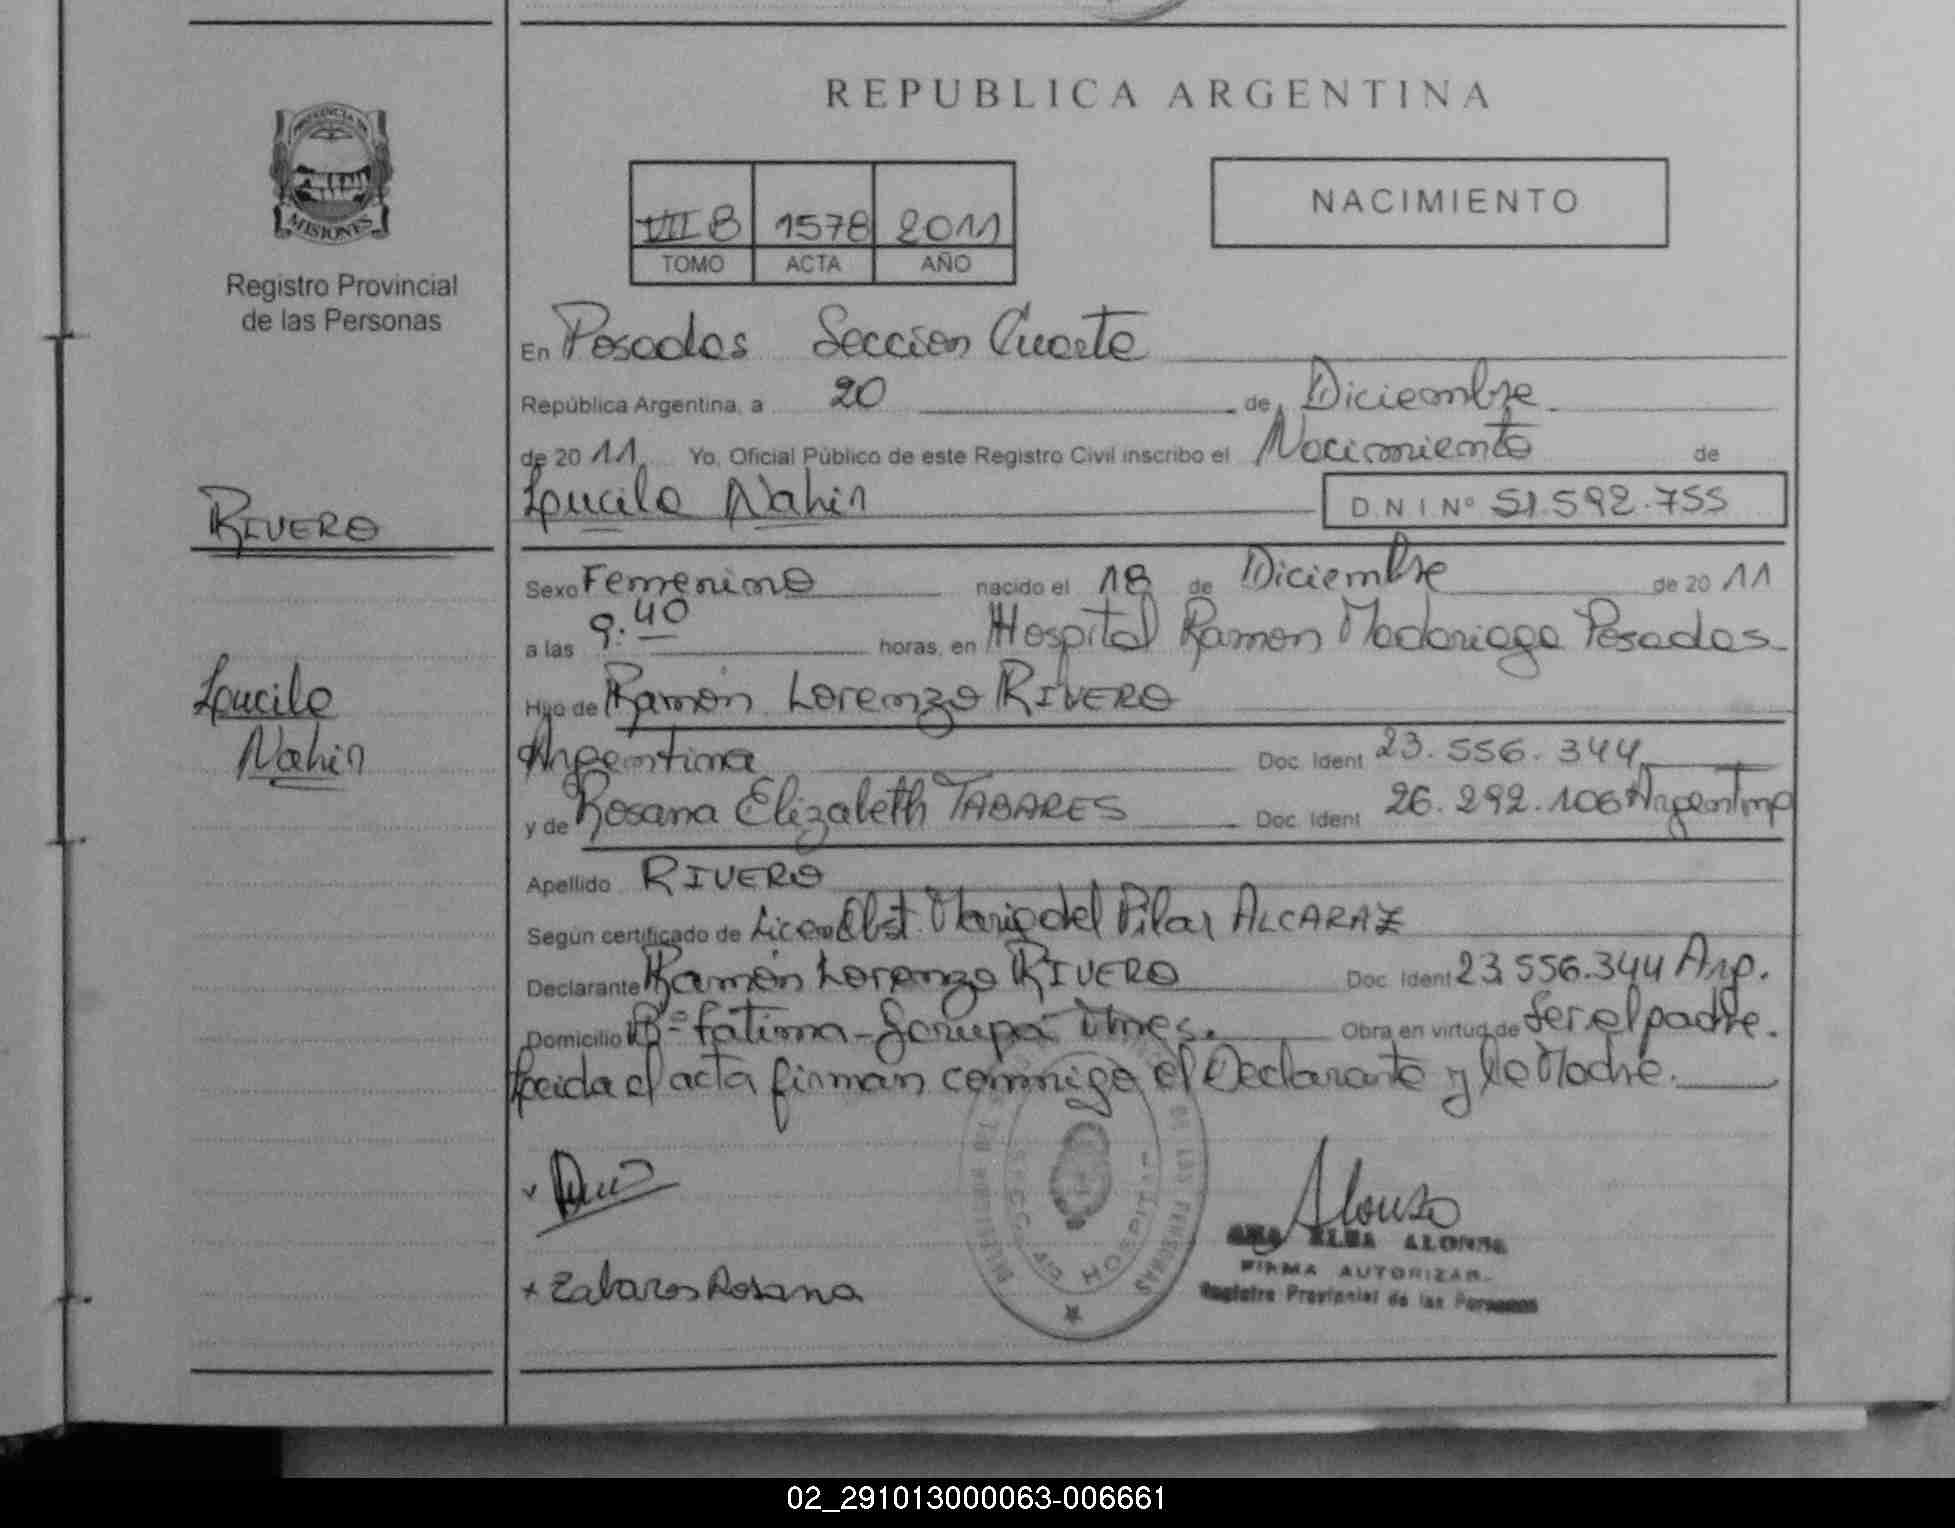 REPUBLICA ARGENTINA
PROVINCIA DE
MISIONES
Registro Provincial
de las Personas
VII B 1578 2011
TOMO ACTA AÑO
NACIMIENTO
En Posadas Seccion Cuarta
República Argentina, a 20 de Diciembre
de 2011 Yo, Oficial Público de este Registro Civil inscribo el Nacimiento de
Lucila Nahir D N I Nº 51.592.755
RIVERO
Lucila
Nahir
Sexo Femenino nacido el 18 de Diciembre de 2011
a las 9.40 horas, en Hospital Ramon Madariaga Posadas
Hijo de Ramón Lorenzo RIVERO
Argentina Doc. Ident 23.556.344
y de Rosana Elizabeth TABARES Doc. Ident 26.292.106 Argentina
Apellido RIVERO
Según certificado de Licen Obst. Maria del Pilar ALCARAZ
Declarante Ramón Lorenzo RIVERO Doc. Ident 23.556.344 Arg.
Domicilio Bº Fatima - Garupá Mnes. Obra en virtud de Ser el padre.
Leida el acta firman conmigo el Declarante y la Madre.
DE LAS PERSONAS
SECC. 4ta HOSPITAL
Alonso
ANA ELBA ALONSO
FIRMA AUTORIZAD
Registro Provincial de las Personas
x Zabares Rosana
02_291013000063-006661